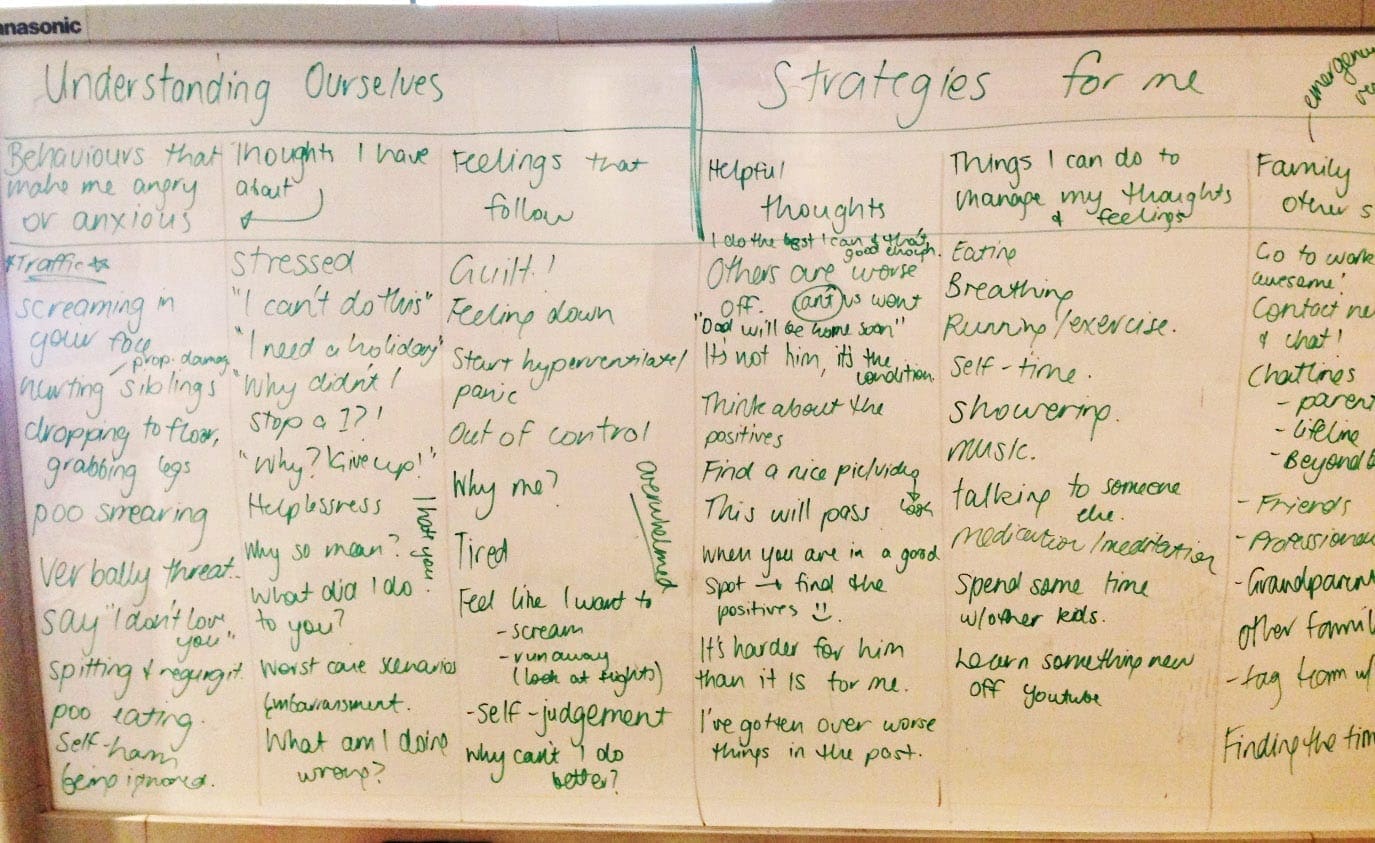 anasonic
Understanding Ourselves
Behaviours that
make me angry
or anxious
Thoughts I have
about
Feelings that
follow
*Traffic*
screaming in
your face
prop. damag
hurting siblings
dropping to floor,
grabbing legs
poo smearing
verbally threat.
say "I don't love
you"
spitting & regurgit.
poo eating.
Self-harm
being ignored.
Stressed
"I can't do this"
"I need a holiday"
"Why didn't I
stop a I?!
"Why? Give up!"
Helplessness
I hate you
Why so mean?
What did I do
to you?
Worst case scenarios
Embarrassment.
What am I doing
wrong?
Guilt!
Feeling down
Start hyperventilate/
panic
Out of control
Why me?
overwhelmed
Tired
Feel like I want to
- scream
- run away
(look at flights)
- self-judgement
Why can't I do
better?
Strategies for me
Helpful
thoughts
Things I can do to
manage my thoughts
& feelings
emergency
Family
other s
I do the best I can & that's
good enough.
Others are worse
off. us wont
"Dad will be home soon"
It's not him, it's the
condition.
Think about the
positives
Find a nice pic/video
look
This will pass
when you are in a good
spot → find the
positives
It's harder for him
than it IS for me.
I've gotten over worse
things in the past.
Eating
Breathing
Running/exercise.
Self-time.
showering.
music.
talking to someone
else.
medication/meditation
Spend some time
w/other kids.
Learn something new
off youtube
Go to work
awesome!
Contact ne
& chat!
Chatlines
- parent
- lifeline
- Beyond b
- Friends
- Professional
- Grandparent
other famil
- tag team w/
Finding the tim